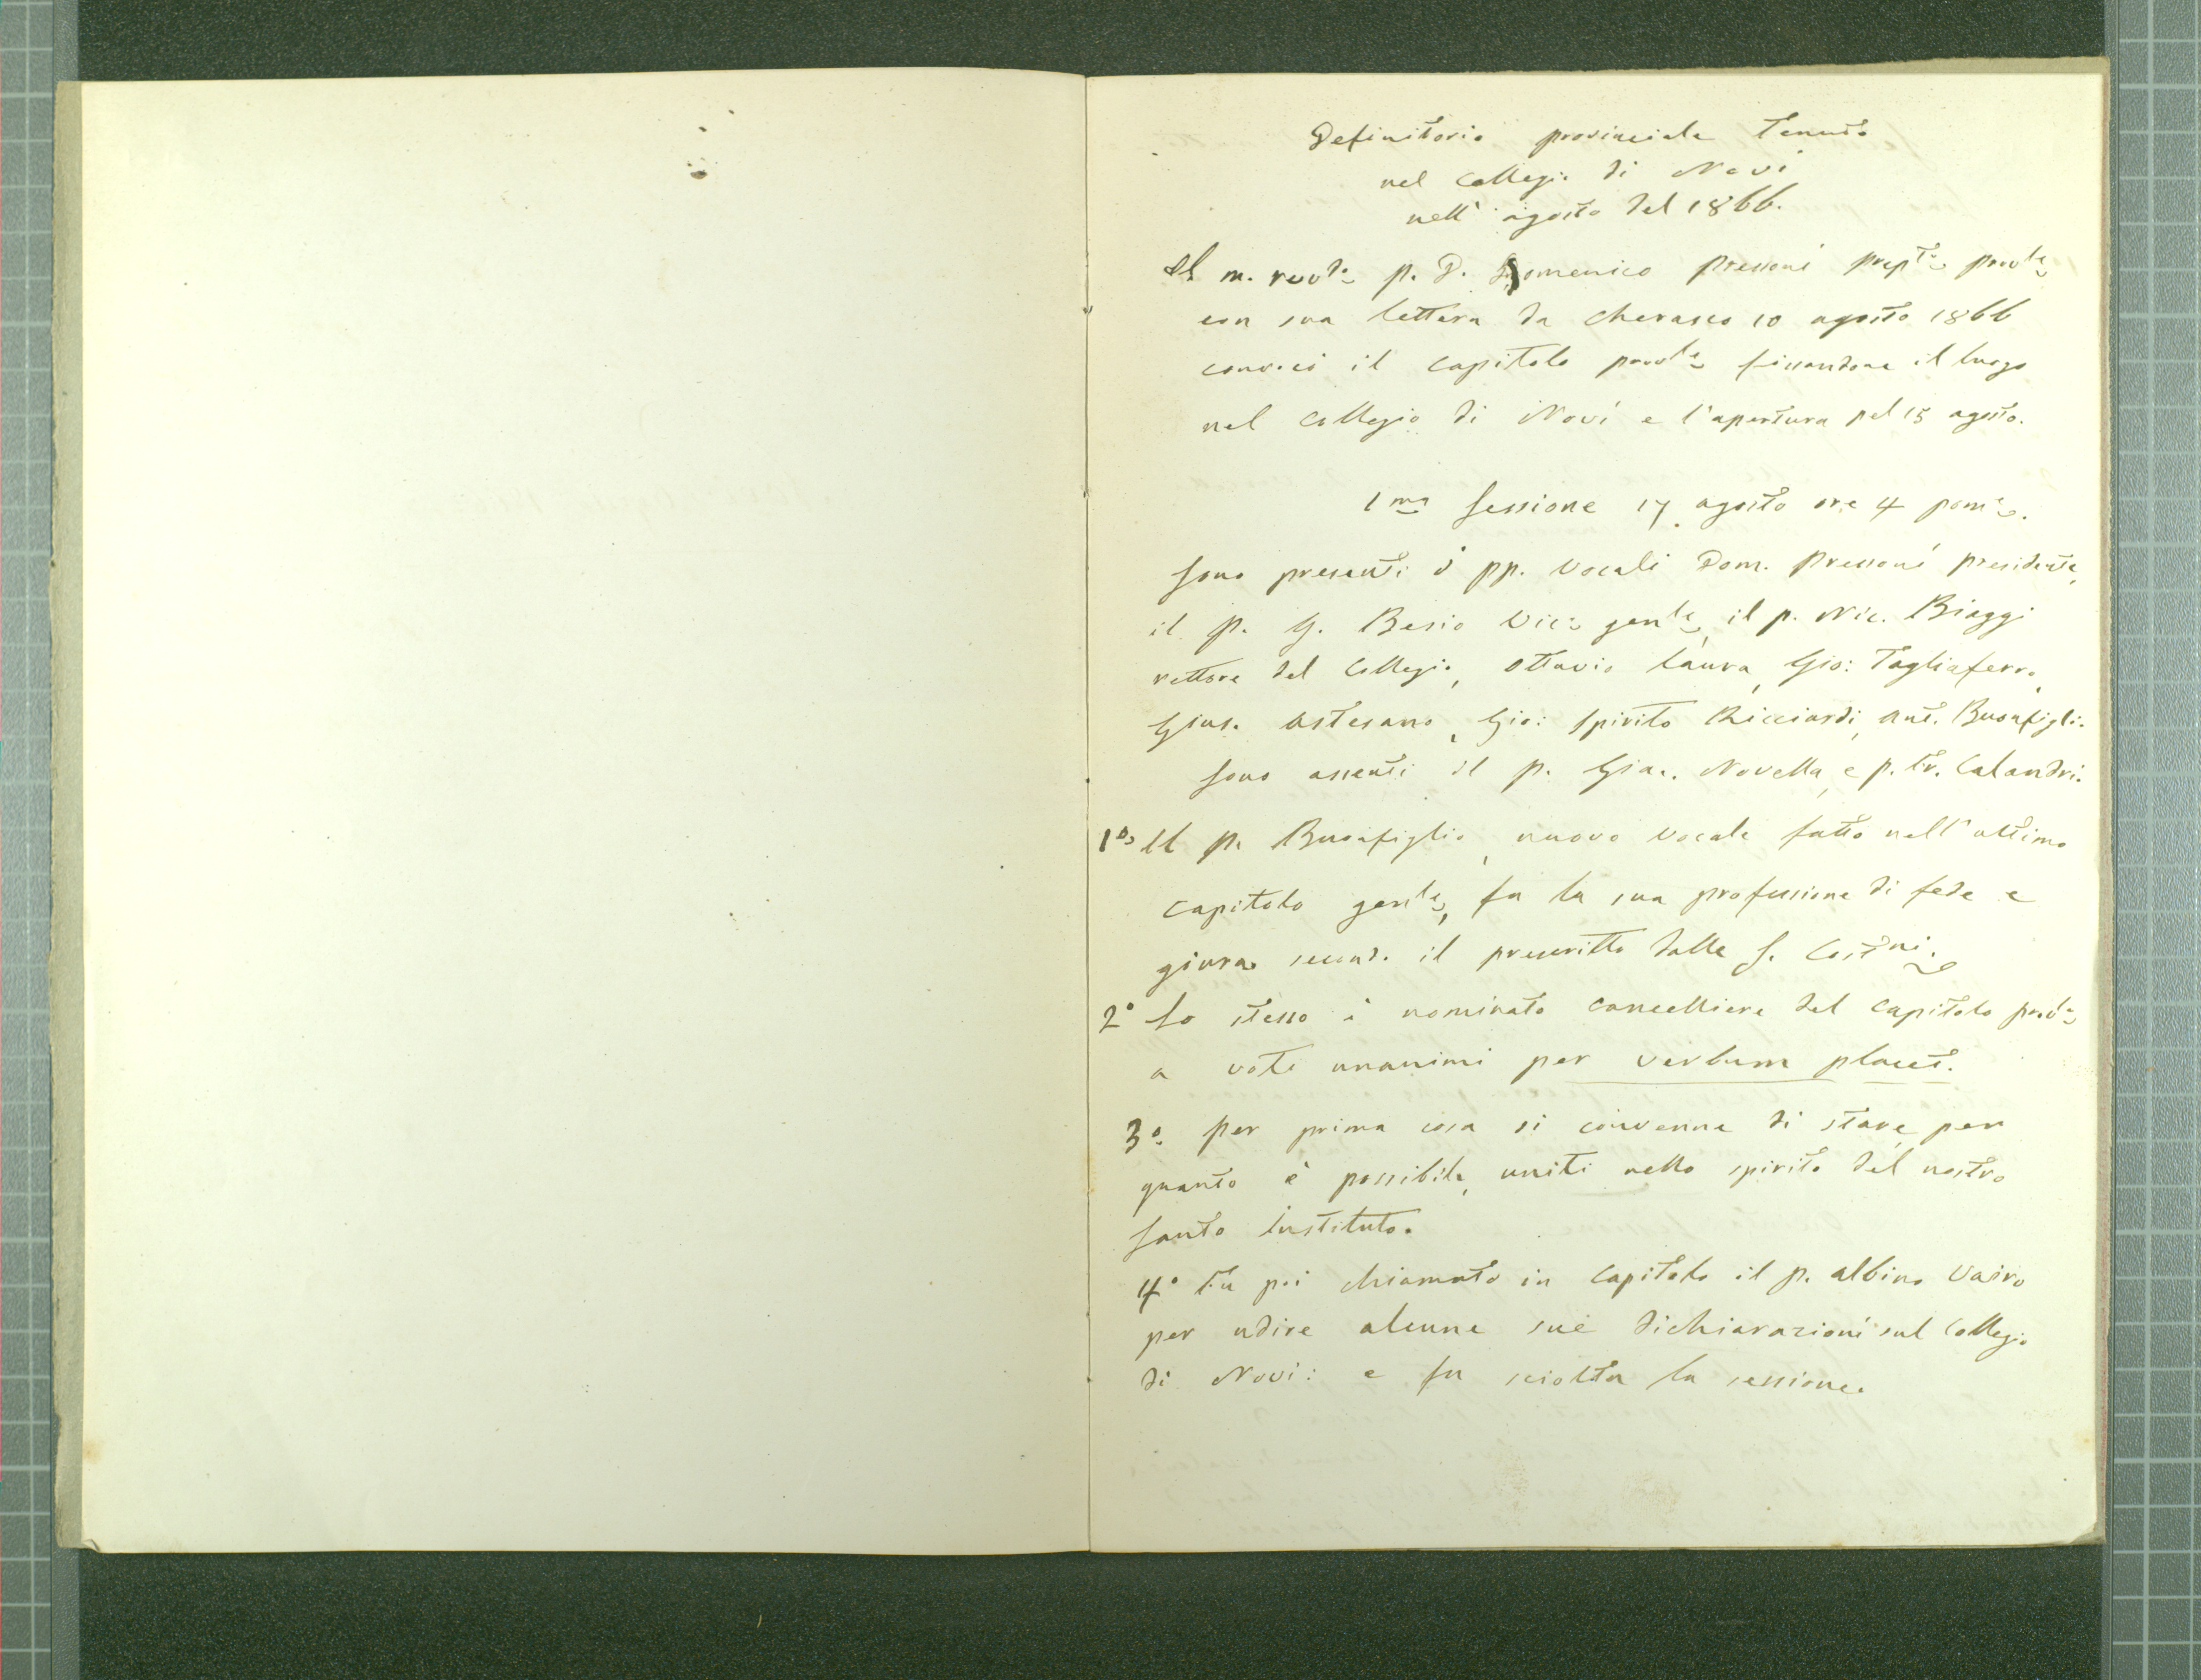 Definitorio provinciale tenuto
nel collegio di Novi
nell' agosto del 1866.
Il m. revdo p. D. Domenico Pressoni prepto provle
con sua lettera da Cherasco 10 agosto 1866
convocò il capitolo provle fissandone il luogo
nel collegio di Novi e l'apertura pel 15 agosto.
1ma Sessione 17 agosto ore 4 pome.
Sono presenti i pp. vocali Dom. Pressoni presidente,
il p. G. Besio Vico genle, il p. Nic. Biaggi
rettore del collegio, Ottavio Laura, Gio: Tagliaferro,
Gius. Astesano, Gio: Spirito Ricciardi, Ant. Buonfiglio
Sono assenti il p. Giac. Novella, e p. Fr. Calandri.
1o Il p. Buonfiglio, nuovo vocale fatto nell'ultimo
capitolo genle, fa la sua professione di fede e
giura second. il prescritto dalle S. Costni.
2o Lo stesso è nominato cancelliere del capitolo provle
a voti unanimi per verbum placet.
3o per prima cosa si convenne di stare, per
quanto è possibile, uniti nello spirito del nostro
santo Instituto.
4o Fu poi chiamato in capitolo il p. Albino Vairo
per udire alcune sue dichiarazioni sul collegio
di Novi: e fu sciolta la sessione.